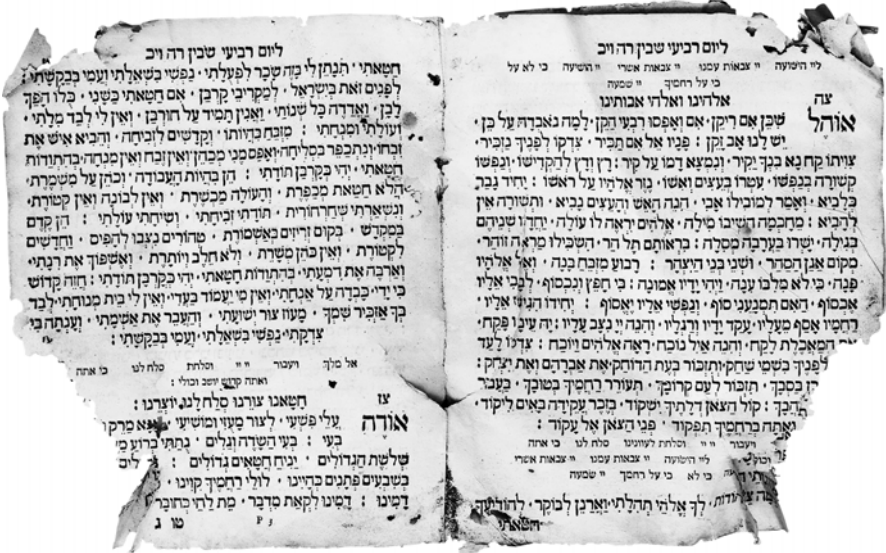 ליום רביעי שבין רה ויכ
ליי הישועה יי צבאות עמנו יי צבאות אשרי יי הושיעה כי לא על
כי על רחמיך יי שמעה
צה
אלהינו ואלהי אבותינו
אוהל שכן אם ריקן · אם ואפסו רבעי הקן · למה נאבדה על כן ·
יש לנו אב זקן : פניו אל אם תכיר · צדקו לפניך נזכיר ·
צויתו קח נא בנך יקיר · ונמצא דמו על קיר : רץ ודץ להקדישו · ונפשו
קשורה בנפשו · עטרו בעצים ואשו · נזר אלהיו על ראשו : יחיד גבר
כלביא · ואמר למובילו אבי · הנה האש והעצים נביא · ותשורה אין
להביא : מחכמה השיבו מילה · אלהים יראה לו עולה · יחדו שניהם
בגילה · ישרו בערבה מסלה : בראותם תל הר · השכילו מראה זוהר ·
מקום אגן הסהר · ושני בני היצהר : רבוע מזבח בנה · ואל אלהיו
פנה · כי לא מלבו ענה · ויהי ידיו אמונה : כי חפץ ונכסוף · לבבי אליו
אכסוף · האם תמנעני סוף · ונפשי אליו יאסוף : יחידו הגיש אליו ·
רחמיו אסף מעליו · עקד ידיו ורגליו · והנה יי נצב עליו : יה עינו פקח ·
המאכלת לקח · והנה איל נוכח · ראה אלהים ויוכח : צדקו לעד
לפניך בשמי שחק · ותזכור בעת הדוחק · את אברהם ואת יצחק :
בסבך · תזכור לעם קרובך · תעורר רחמיך בטובך ·
: קול הצאן דלתיך ישקוד · בזכר עקידה באים ליקוד ·
ואתה ברחמיך תפקוד · פני הצאן אל עקוד :
ויעבור יי יי וסלחת לעווניגו סלח לנו כי אתה
ליי הישועה יי צבאות עמנו יי צבאות אשרי
כי לא כי על רחמך יי שמעה
לך אלהי תהלתי · ואראנן לבוקר · להודיעך
חטאתי
ליום רביעי שבין רה ויכ
חטאתי · תנתן לי בזה שכר לפעלתי · נפשי בשאלתי ועמי בבקשתי :
לפנים זאת בישראל · למקריבי קרבן · אם חטאתי כשני · כלו הפך
לבן · ואדדה כל שנותי · ואנין תמיד על חורבן · ואין לי לבד מלתי ·
ועולתי ומנחתי : מזבח בהיותו · וקדשים לזביחה · והביא איש את
זבחו · ונתכפר בסליחה · ואפס מני מכהן · ואין זבח ואין מנחה · בהתודות
חטאתי · יהי בקרבן תודתי : הן בהיות העבודה · וכהן על משמרת ·
הלא חטאת מכפרת · והעולה מכשרת · ואין לבונה ואין קטורת ·
ונשארתי שחרחורית · תודתי זביחתי · ושיחתי עולתי : הן קדם
במקדש · בקום זריזים באשמורת · טהורים נצבו להפיס · וחדשים
לקטורת · ואין כהן משרת · ולא חלב ויותרת · ואשפוך את רנתי ·
וארבה את דמעתי · בהתודות חטאתי · יהי כקרבן תודתי : חזה קדוש
כי ידי כבדה על אנחתי · ואין מי יעמוד בעדי · ואין לי בית מנוחתי · לבד
בך אזכיר שמך · מעוז צור ישועתי · והעבר את אשמתי · וענתה בי
צדקתי · נפשי בשאלתי · ועמי בבקשתי :
אל מלך ויעבור יי יי וסלחת סלח לנו כי אתה
ואתה קדוש יושב וכולי :
צו
חטאנו צורנו סלח לנו יוצרנו :
אודה עלי פשעי · לצור מעזי ומושיעי
בעי : בעי השׂדה וגלים · נתתי ברוע
שלשת הגדולים · יניח חטאים גדולים :
בשבעים פתנים כהיינו · לולי רחמיך קוינו ·
דמינו : דמינו לקאת מדבר · מת לחי כחובר
P 3
טו ג